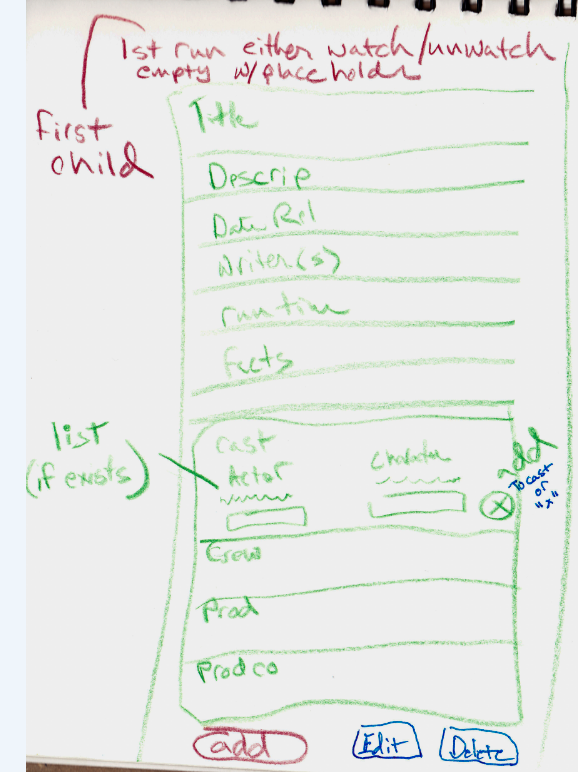 1st run either watch/unwatch
empty w/placeholder
first
child
Title
Descrip
Date Rel
Writer(s)
runtime
Facts
list
(if exists)
Cast
Actor
Character
add
To cast
or
"x"
X
Crew
Prod
Prod co
add
Edit
Delete